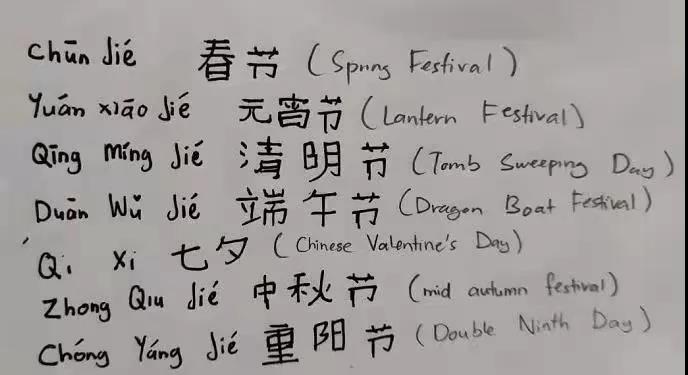 Chūn Jié 春节 (Spring Festival)
Yuán xiāo Jié 元宵节 (Lantern Festival)
Qīng Míng Jié 清明节 (Tomb Sweeping Day)
Duān Wǔ Jié 端午节 (Dragon Boat Festival)
Qi xi 七夕 (Chinese Valentine's Day)
Zhong Qiu Jié 中秋节 (mid autumn festival)
Chóng Yáng Jié 重阳节 (Double Ninth Day)